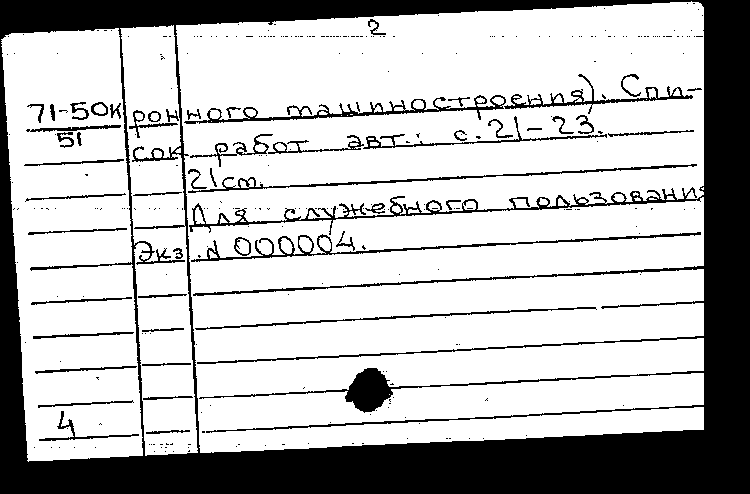 2
71-50к ронного машиностроения). Спи-
51
сок работ авт.: с. 21-23.
21 см.
Для служебного пользования
Экз. № 000004.
4